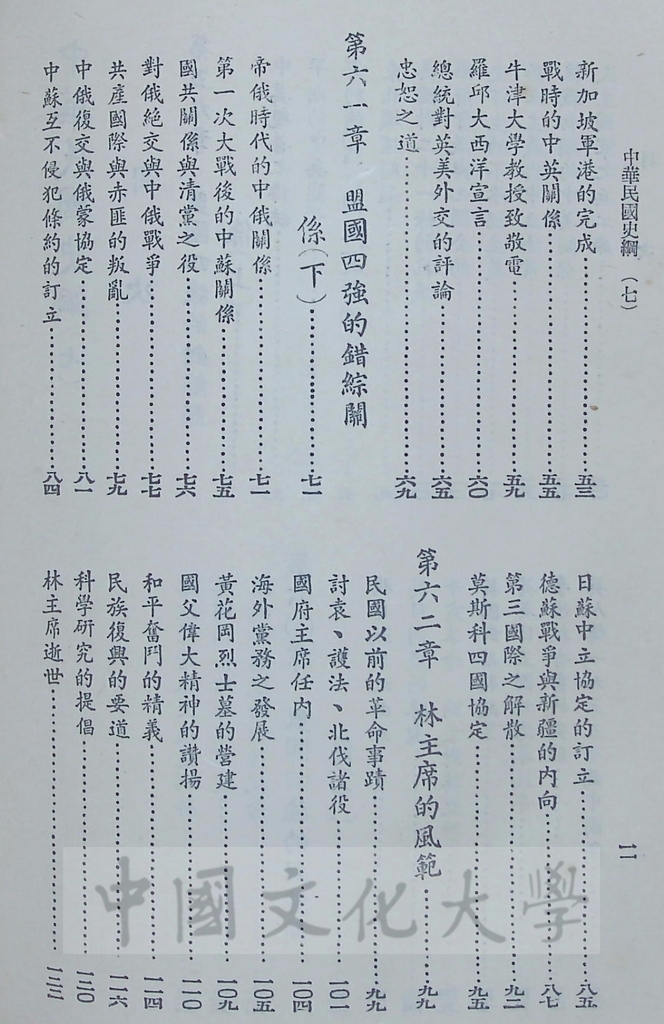 中華民國史綱（七）
二
新加坡軍港的完成……五三
戰時的中英關係……五五
牛津大學教授致敬電……五九
羅邱大西洋宣言……六〇
總統對英美外交的評論……六五
忠恕之道……六九
第六一章　盟國四強的錯綜關
係（下）……七一
帝俄時代的中俄關係……七一
第一次大戰後的中蘇關係……七五
國共關係與清黨之役……七六
對俄絕交與中俄戰爭……七七
共產國際與赤匪的叛亂……七九
中俄復交與俄蒙協定……八一
中蘇互不侵犯條約的訂立……八四
日蘇中立協定的訂立……八五
德蘇戰爭與新疆的內向……八七
第三國際之解散……九二
莫斯科四國協定……九五
第六二章　林主席的風範……九九
民國以前的革命事蹟……九九
討袁、護法、北伐諸役……一〇一
國府主席任內……一〇四
海外黨務之發展……一〇五
黃花岡烈士墓的營建……一〇九
國父偉大精神的讚揚……一一〇
和平奮鬥的精義……一一四
民族復興的要道……一一六
科學研究的提倡……一三〇
林主席逝世……一三二
中國文化大學